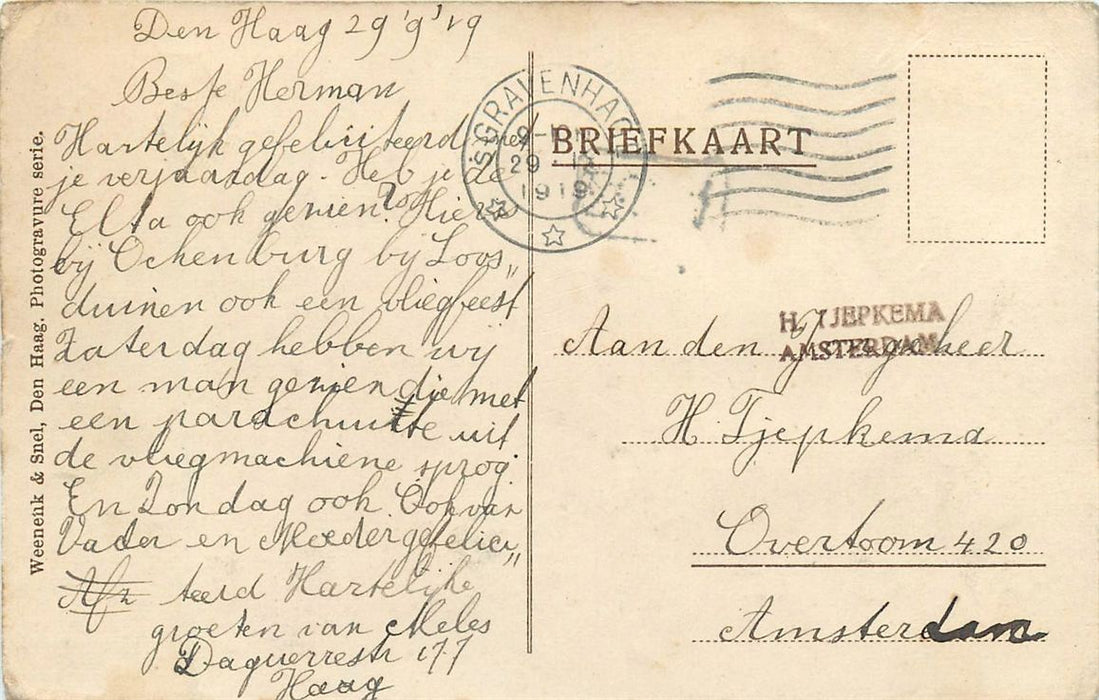 Den Haag 29 '9 '19
Beste Herman
Hartelijk gefeliciteerd met
je verjaardag. Heb je de
Elta ook genien? Hier is
bij Ockenburg bij Loos„
duinen ook een vliegfeest
Zaterdag hebben wij
een man genien die met
een parachuitte uit
de vliegmachiene sprog.
En Zondag ook. Ook van
Vader en Moeder gefelici„
teerd Hartelijke
groeten van Meles
Daguerrestr 177
Haag
Weenenk & Snel, Den Haag. Photogravure serie.
'S GRAVENHAGE
29
1919
BRIEFKAART
H. TJEPKEMA
AMSTERDAM
Aan den Jongeheer
H Tjepkema
Overtoom 420
Amsterdam